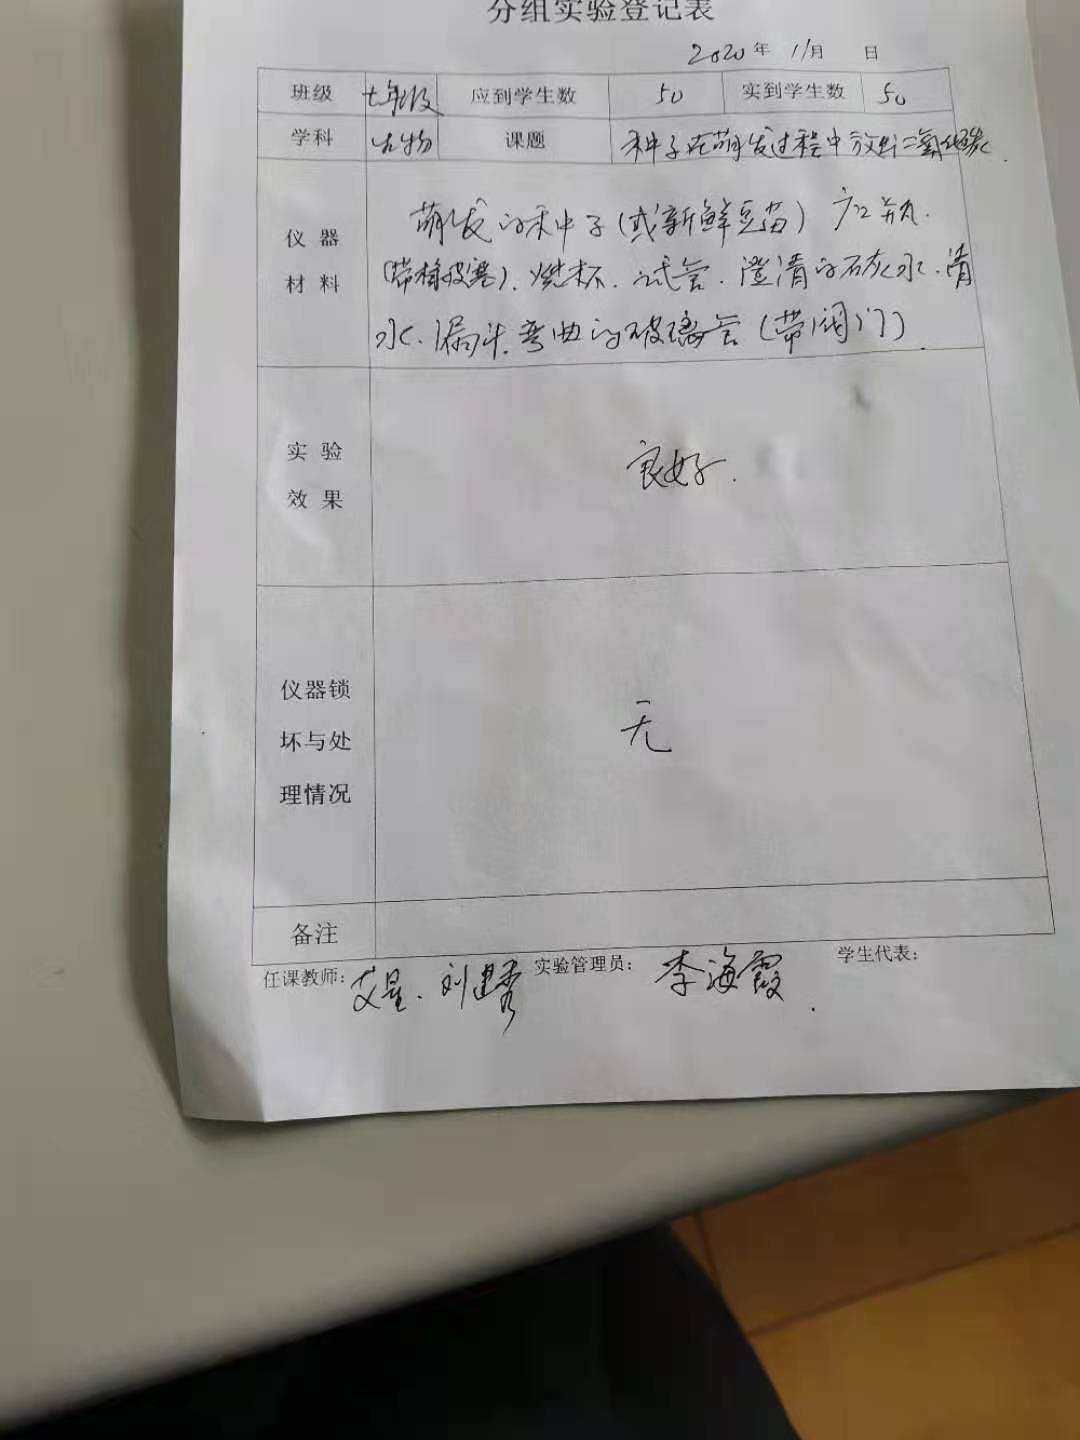 分组实验登记表
2020年 11月 日
班级 七年级 应到学生数 50 实到学生数 50
学科 生物 课题 种子在萌发过程中放出二氧化碳
仪器材料 萌发的种子(或新鲜豆苗) 广口瓶.
(带橡皮塞). 烧杯. 试管. 澄清的石灰水. 清
水. 漏斗. 弯曲的玻璃管(带阀门).
实验
效果 良好.
仪器锁
坏与处 无
理情况
备注
任课教师: 艾星. 刘建秀 实验管理员: 李海霞. 学生代表: